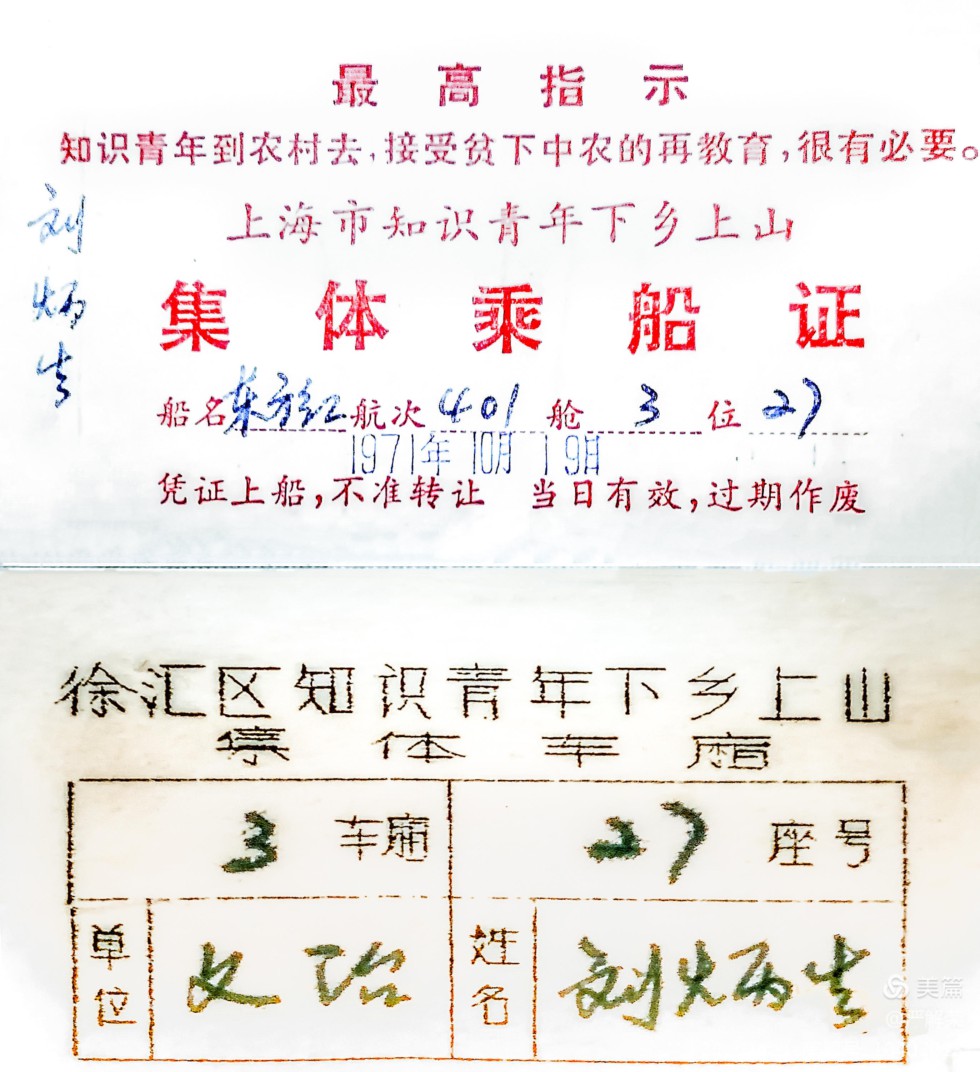 最高指示
知识青年到农村去，接受贫下中农的再教育，很有必要。
刘炳生
上海市知识青年下乡上山
集体乘船证
船名东方红航次401舱3位27
1971年10月19日
凭证上船，不准转让 当日有效，过期作废
徐汇区知识青年下乡上山
集体车厢
3车厢 27座号
单位 文治 姓名 刘炳生
美篇